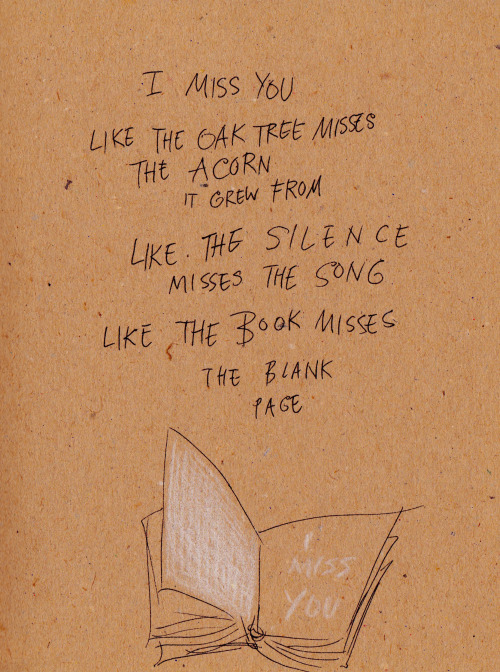 I MISS YOU
LIKE THE OAK TREE MISSES
THE ACORN
IT GREW FROM
LIKE THE SILENCE
MISSES THE SONG
LIKE THE BOOK MISSES
THE BLANK
PAGE
I
MISS
YOU